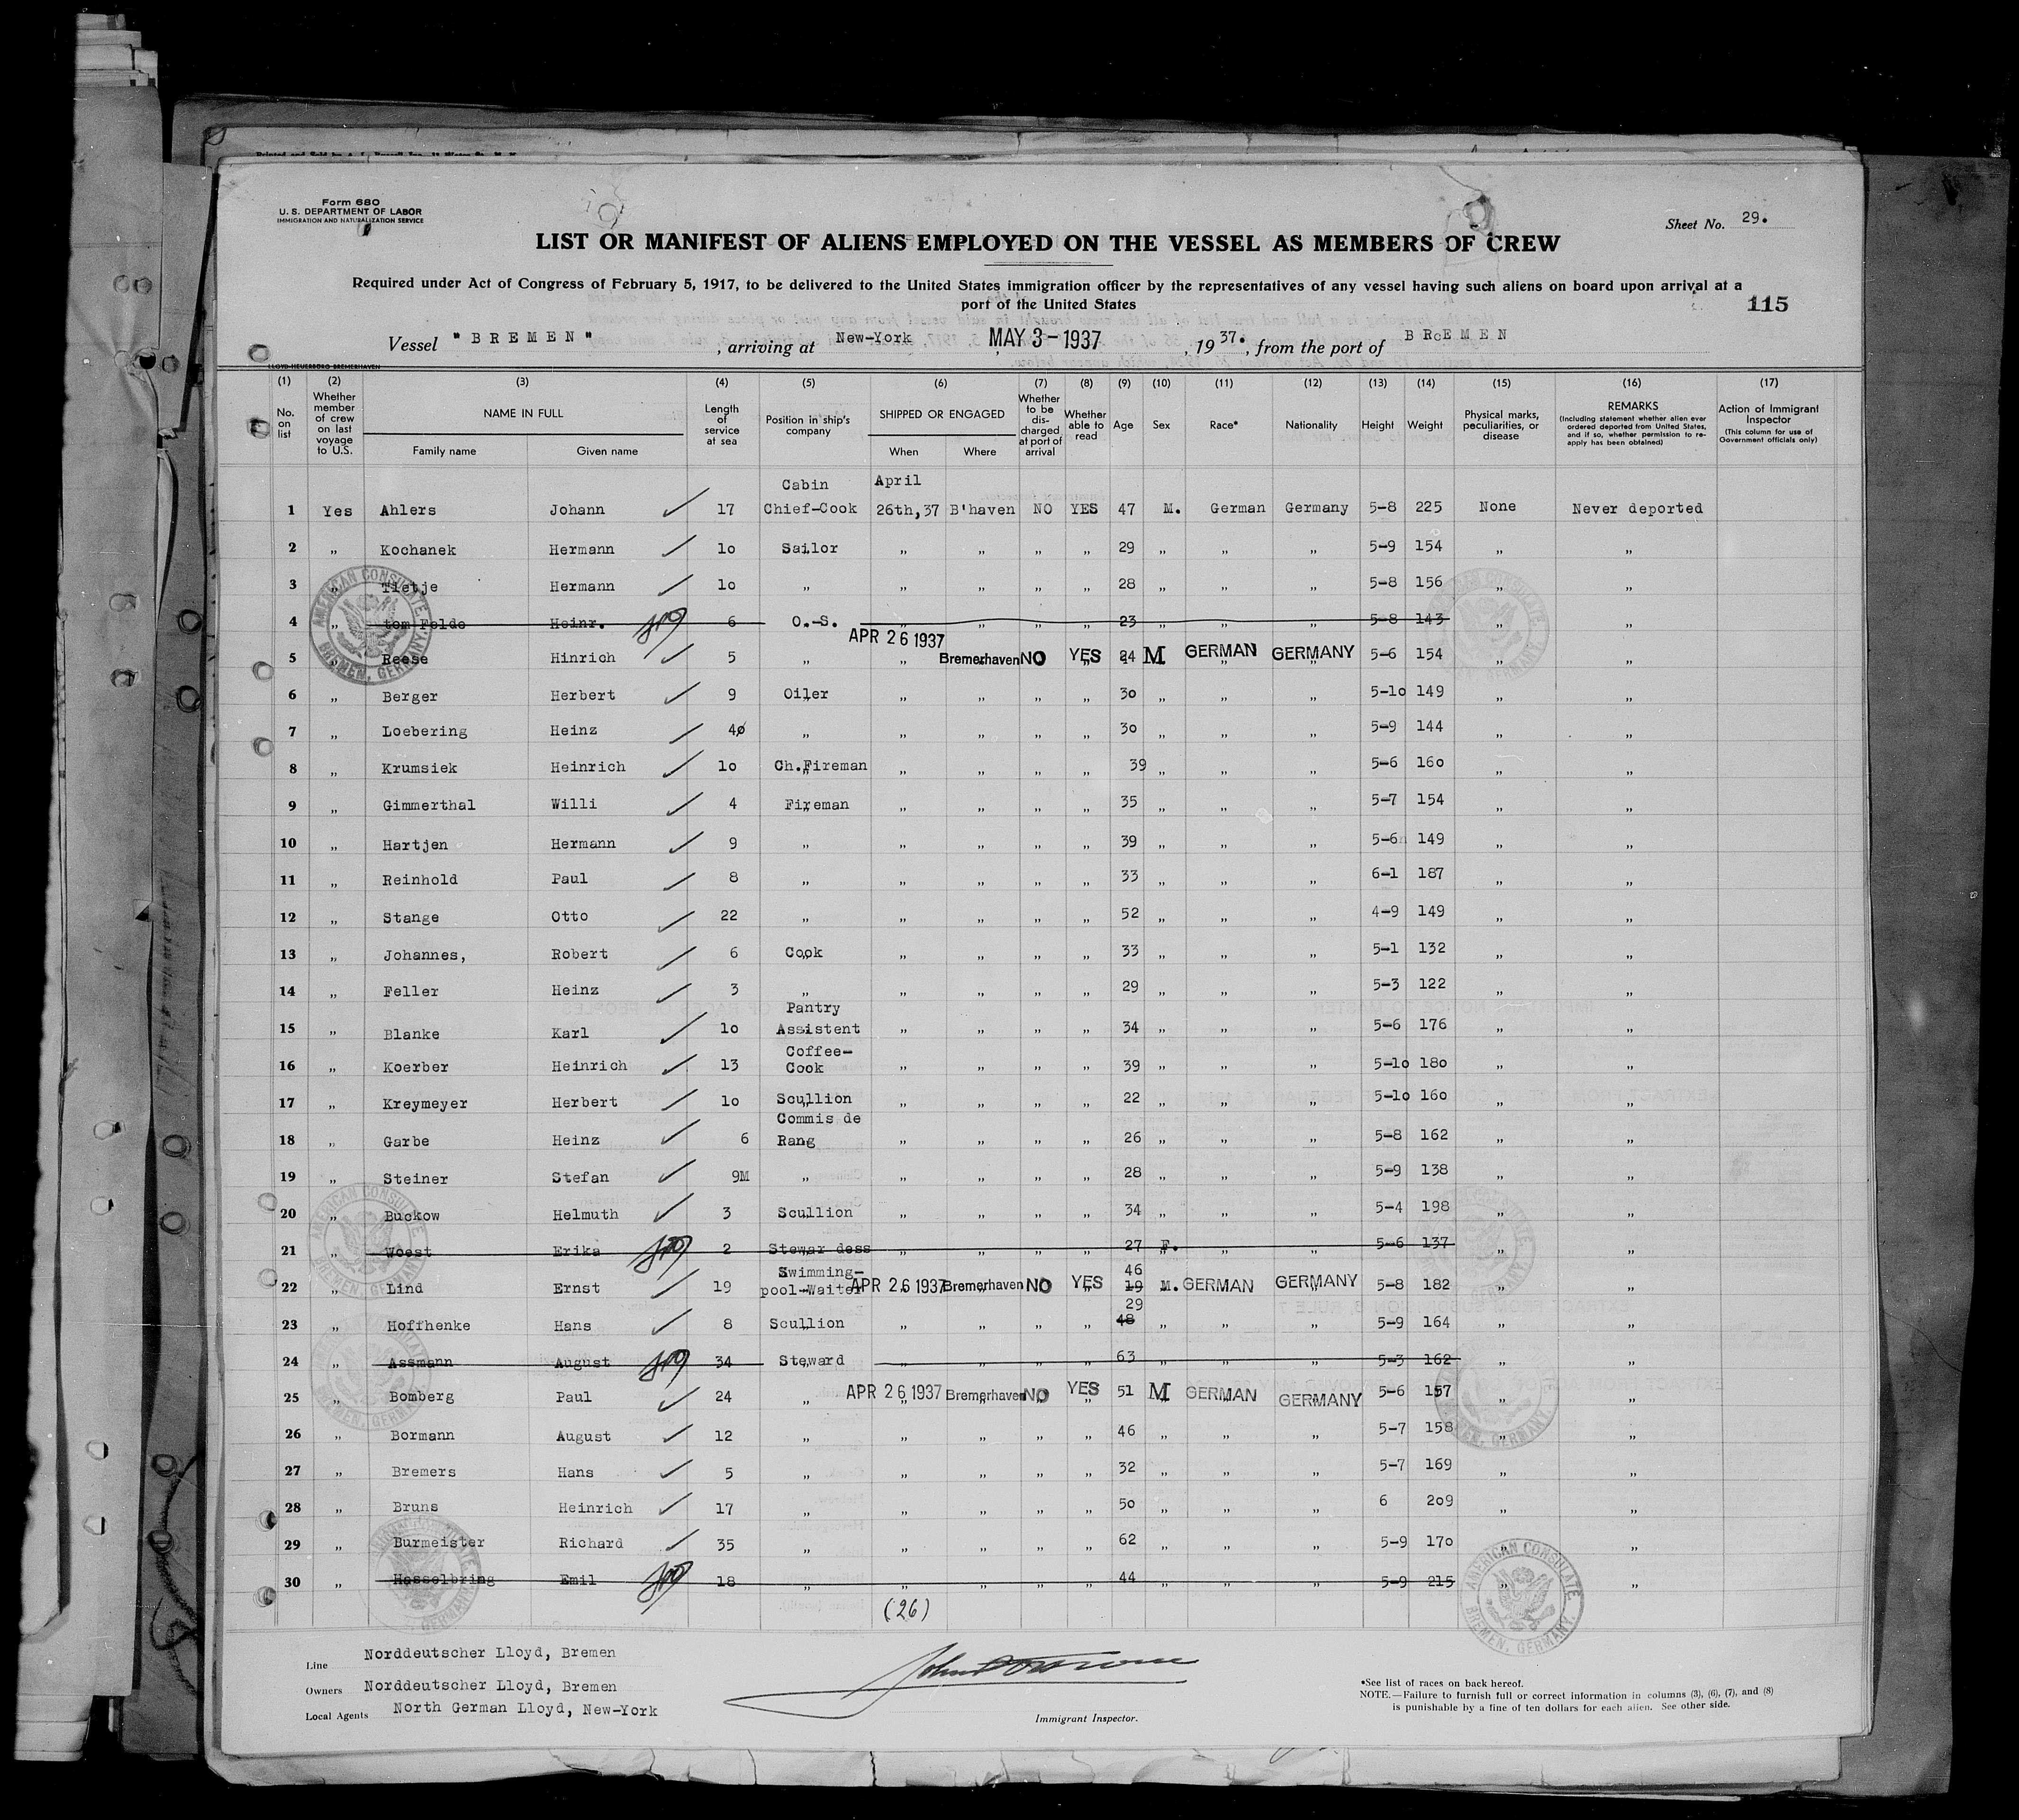 Form 680
U. S. DEPARTMENT OF LABOR
IMMIGRATION AND NATURALIZATION SERVICE
Sheet No. 29.
LIST OR MANIFEST OF ALIENS EMPLOYED ON THE VESSEL AS MEMBERS OF CREW
Required under Act of Congress of February 5, 1917, to be delivered to the United States immigration officer by the representatives of any vessel having such aliens on board upon arrival at a
port of the United States
115
Vessel "BREMEN", arriving at New-York MAY 3-1937, 1937., from the port of BREMEN
LLOYD-HEUERBÜRO BREMERHAVEN
(1) (2) (3) (4) (5) (6) (7) (8) (9) (10) (11) (12) (13) (14) (15) (16) (17)
No. on list
Whether member of crew on last voyage to U.S.
NAME IN FULL
Family name Given name
Length of service at sea
Position in ship's company
SHIPPED OR ENGAGED
When Where
Whether to be discharged at port of arrival
Whether able to read
Age
Sex
Race*
Nationality
Height
Weight
Physical marks, peculiarities, or disease
REMARKS
(Including statement whether alien ever ordered deported from United States, and if so, whether permission to reapply has been obtained)
Action of Immigrant Inspector
(This column for use of Government officials only)
Cabin April
1 Yes Ahlers Johann 17 Chief-Cook 26th,37 B'haven NO YES 47 M. German Germany 5-8 225 None Never deported
2 „ Kochanek Hermann 10 Sailor „ „ „ „ 29 „ „ „ 5-9 154 „ „
3 „ Tietje Hermann 10 „ „ „ „ „ 28 „ „ „ 5-8 156 „ „
4 „ tom Felde Heinr. 6 O.-S. „ „ „ „ 23 „ „ „ 5-8 143 „ „
APR 26 1937
5 „ Reese Hinrich 5 „ „ Bremerhaven NO YES 24 M GERMAN GERMANY 5-6 154 „ „
6 „ Berger Herbert 9 Oiler „ „ „ „ 30 „ „ „ 5-10 149 „ „
7 „ Loebering Heinz 40 „ „ „ „ „ 30 „ „ „ 5-9 144 „ „
8 „ Krumsiek Heinrich 10 Ch.Fireman „ „ „ „ 39 „ „ „ 5-6 160 „ „
9 „ Gimmerthal Willi 4 Fireman „ „ „ „ 35 „ „ „ 5-7 154 „ „
10 „ Hartjen Hermann 9 „ „ „ „ „ 39 „ „ „ 5-6 149 „ „
11 „ Reinhold Paul 8 „ „ „ „ „ 33 „ „ „ 6-1 187 „ „
12 „ Stange Otto 22 „ „ „ „ „ 52 „ „ „ 4-9 149 „ „
13 „ Johannes, Robert 6 Cook „ „ „ „ 33 „ „ „ 5-1 132 „ „
14 „ Feller Heinz 3 „ „ „ „ „ 29 „ „ „ 5-3 122 „ „
Pantry
15 „ Blanke Karl 10 Assistent „ „ „ „ 34 „ „ „ 5-6 176 „ „
Coffee-
16 „ Koerber Heinrich 13 Cook „ „ „ „ 39 „ „ „ 5-10 180 „ „
17 „ Kreymeyer Herbert 10 Scullion „ „ „ „ 22 „ „ „ 5-10 160 „ „
Commis de
18 „ Garbe Heinz 6 Rang „ „ „ „ 26 „ „ „ 5-8 162 „ „
19 „ Steiner Stefan 9M „ „ „ „ „ 28 „ „ „ 5-9 138 „ „
20 „ Buckow Helmuth 3 Scullion „ „ „ „ 34 „ „ „ 5-4 198 „ „
21 „ Woest Erika 2 Stewar dess „ „ „ „ 27 F. „ „ 5-6 137 „ „
Swimming- 46
22 „ Lind Ernst 19 pool-Waiter APR 26 1937 Bremerhaven NO YES 19 M. GERMAN GERMANY 5-8 182 „ „
29
23 „ Hoffhenke Hans 8 Scullion „ „ „ „ 48 „ „ „ 5-9 164 „ „
24 „ Assmann August 34 Steward „ „ „ „ 63 „ „ „ 5-3 162 „ „
25 „ Bomberg Paul 24 „ APR 26 1937 Bremerhaven NO YES 51 M GERMAN GERMANY 5-6 157 „ „
26 „ Bormann August 12 „ „ „ „ „ 46 „ „ „ 5-7 158 „ „
27 „ Bremers Hans 5 „ „ „ „ „ 32 „ „ „ 5-7 169 „ „
28 „ Bruns Heinrich 17 „ „ „ „ „ 50 „ „ „ 6 209 „ „
29 „ Burmeister Richard 35 „ „ „ „ „ 62 „ „ „ 5-9 170 „ „
30 „ Hesselbring Emil 18 „ „ „ „ „ 44 „ „ „ 5-9 215 „ „
(26)
AMERICAN CONSULATE, BREMEN, GERMANY.
AMERICAN CONSULATE BREMEN, GERMANY.
Line Norddeutscher Lloyd, Bremen
Owners Norddeutscher Lloyd, Bremen
Local Agents North German Lloyd, New-York
Immigrant Inspector.
*See list of races on back hereof.
NOTE.—Failure to furnish full or correct information in columns (3), (6), (7), and (8)
is punishable by a fine of ten dollars for each alien. See other side.